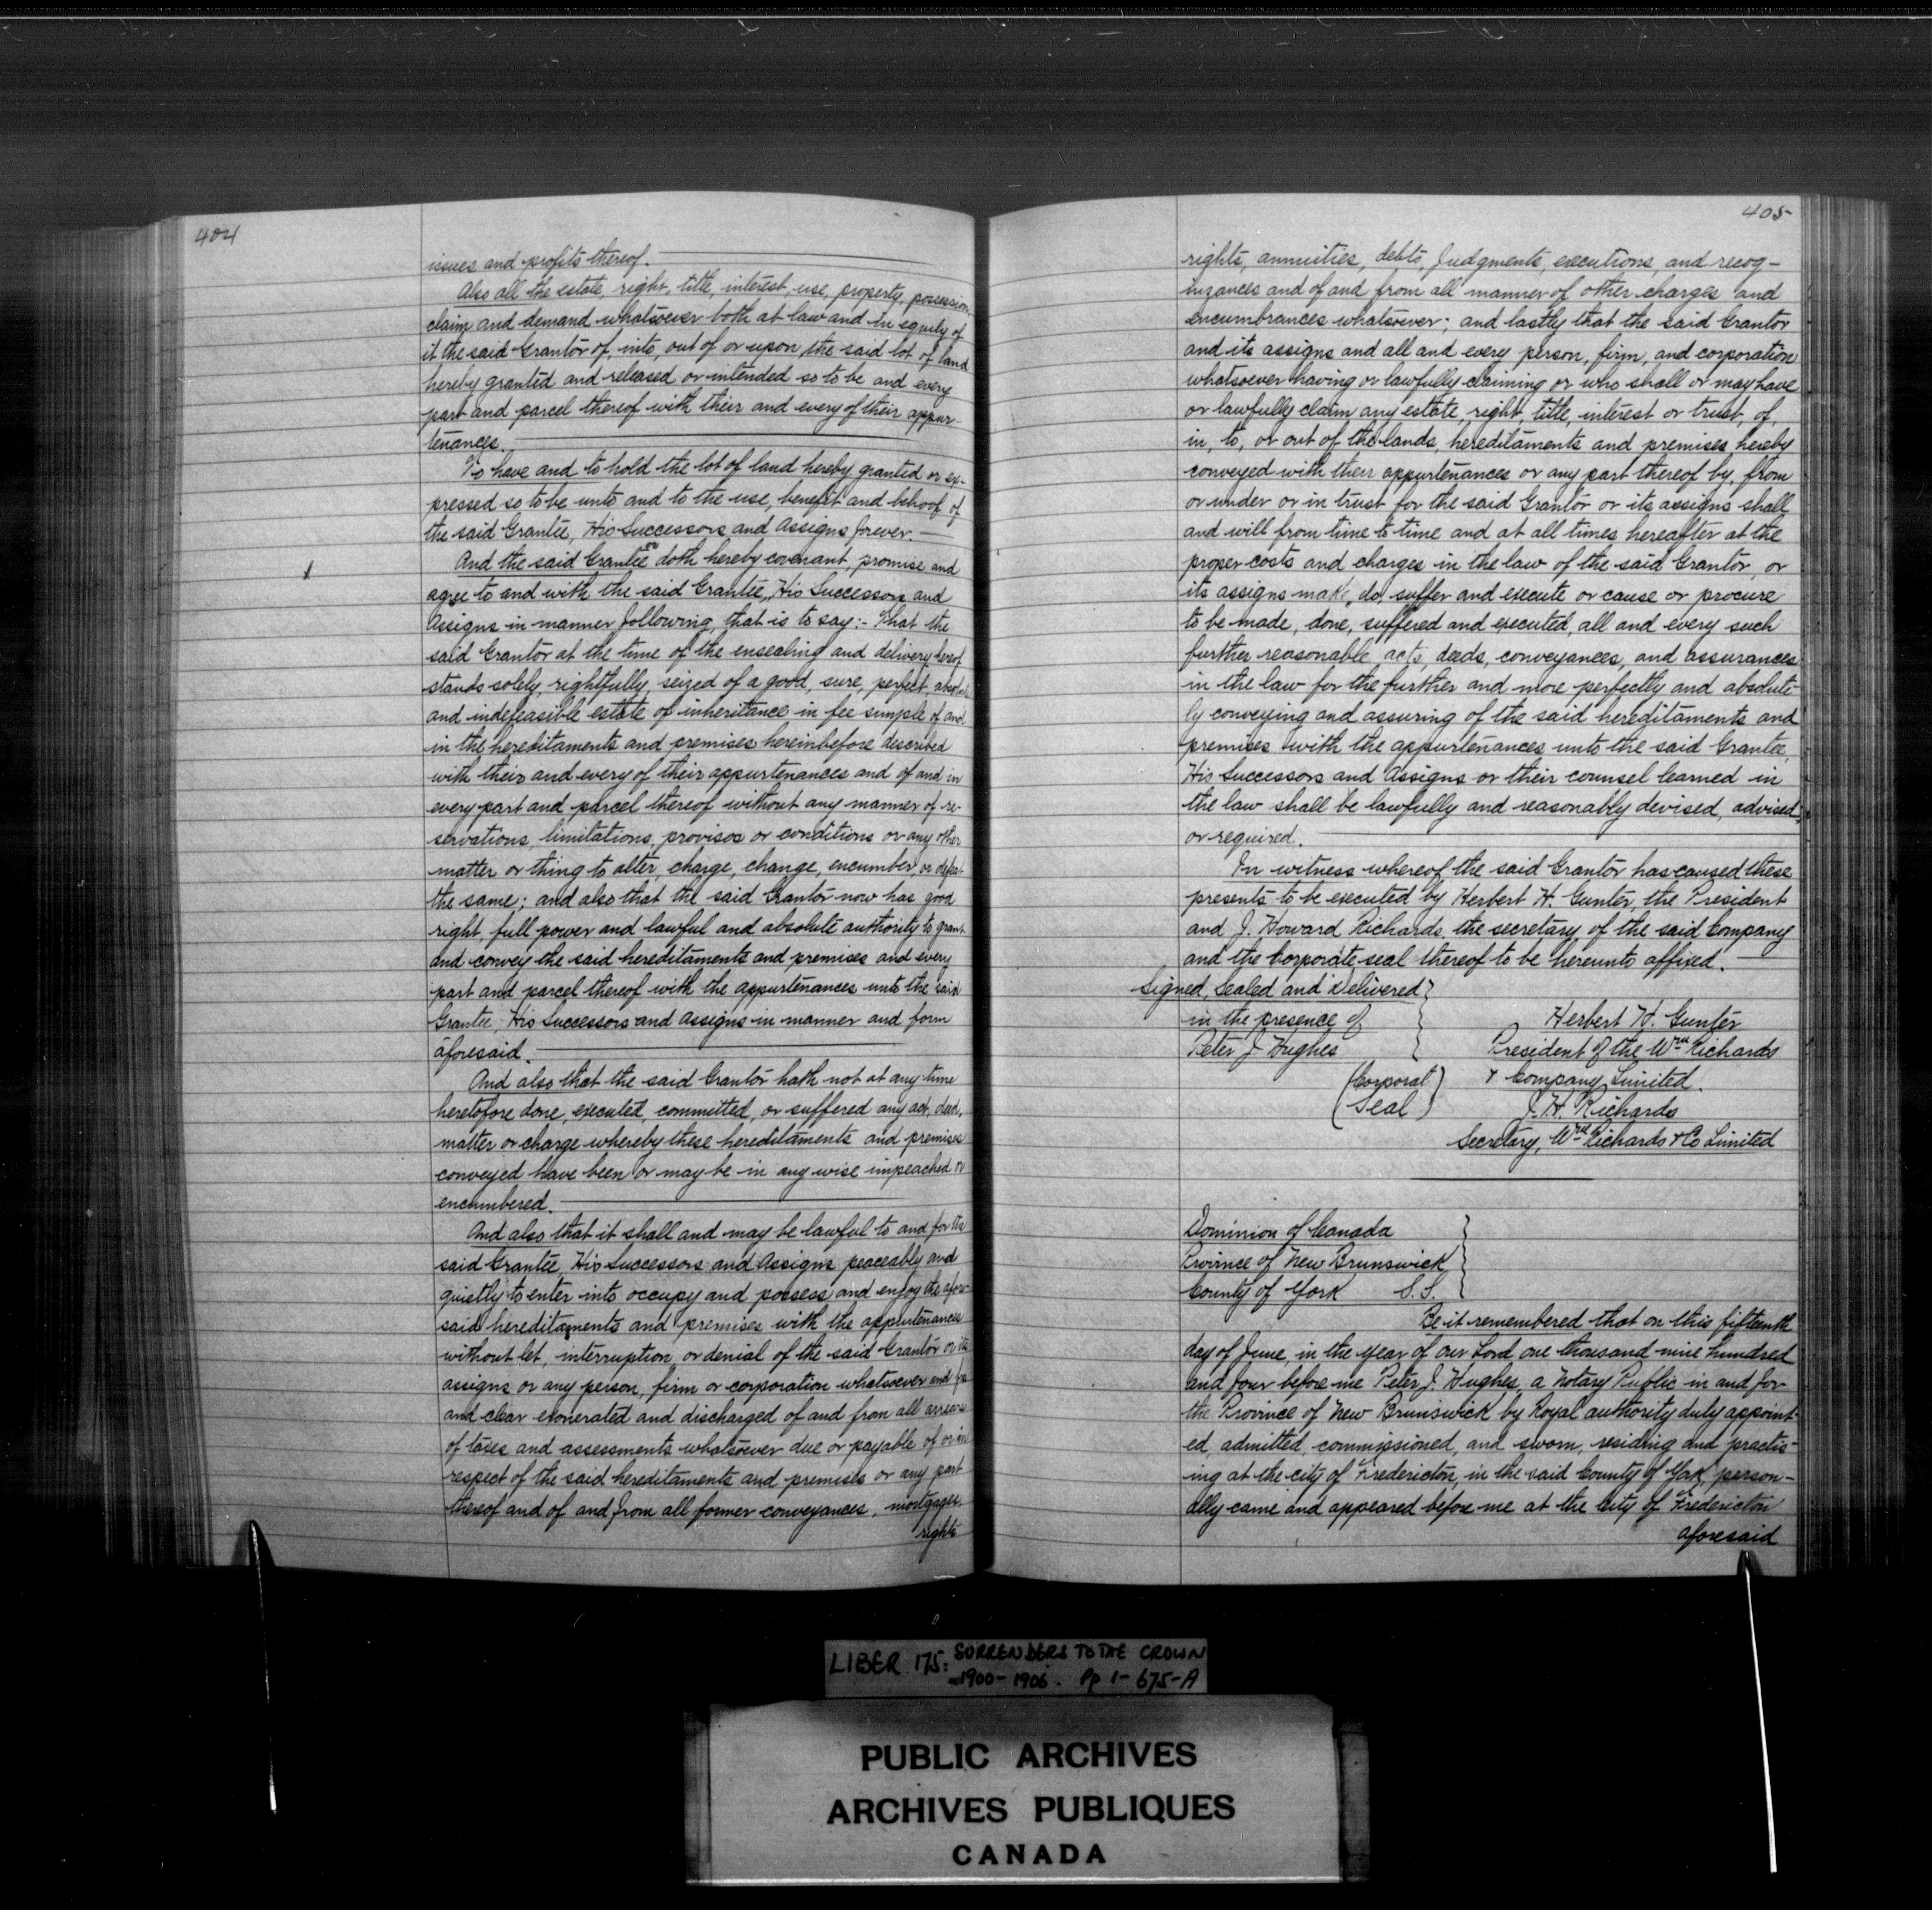 404
issues and profits thereof.
Also all the estate, right, title, interest, use, property, possession,
claim and demand whatsoever both at law and in equity of
it the said Grantor of, into, out of or upon the said lot of land
hereby granted and released or intended so to be and every
part and parcel thereof with their and every of their appur-
tenances.
To have and to hold the lot of land hereby granted or ex-
pressed so to be unto and to the use, benefit and behoof of
the said Grantee, His Successors and Assigns forever.
And the said Grantee or doth hereby covenant, promise and
agree to and with the said Grantee, His Successors and
Assigns in manner following, that is to say:- That the
said Grantor at the time of the ensealing and delivery hereof
stands solely, rightfully, seized of a good, sure, perfect, absolute
and indefeasible estate of inheritance in fee simple of and
in the hereditaments and premises hereinbefore described
with their and every of their appurtenances and of and in
every part and parcel thereof without any manner of re-
servations, limitations, provisos or conditions or any other
matter or thing to alter, charge, change, encumber, or defeat
the same; and also that the said Grantor now has good
right, full power and lawful and absolute authority to grant
and convey the said hereditaments and premises and every
part and parcel thereof with the appurtenances unto the said
Grantee, His Successors and Assigns in manner and form
aforesaid.
And also that the said Grantor hath not at any time
heretofore done, executed, committed, or suffered any act, deed,
matter or charge whereby these hereditaments and premises
conveyed have been or may be in any wise impeached or
encumbered.
And also that it shall and may be lawful to and for the
said Grantee, His Successors and Assigns peaceably and
quietly to enter into occupy and possess and enjoy the afore-
said hereditaments and premises with the appurtenances
without let, interruption or denial of the said Grantor or its
assigns or any person, firm or corporation whatsoever and free
and clear exonerated and discharged of and from all arrears
of taxes and assessments whatsoever due or payable of or in
respect of the said hereditaments and premises or any part
thereof and of and from all former conveyances, mortgages
rights
405
rights, annuities, debts, Judgments, executions, and recog-
nizances and of and from all manner of other charges and
encumbrances whatsoever; and lastly that the said Grantor
and its assigns and all and every person, firm, and corporation
whatsoever having or lawfully claiming or who shall or may have
or lawfully claim any estate, right, title, interest or trust, of,
in, to, or out of the lands, hereditaments and premises hereby
conveyed with their appurtenances or any part thereof by, from
or under or in trust for the said Grantor or its assigns shall
and will from time to time and at all times hereafter at the
proper costs and charges in the law of the said Grantor, or
its assigns make, do, suffer and execute or cause or procure
to be made, done, suffered and executed, all and every such
further reasonable acts, deeds, conveyances, and assurances
in the law for the further and more perfectly and absolute-
ly conveying and assuring of the said hereditaments and
premises with the appurtenances unto the said Grantee,
His Successors and Assigns or their counsel learned in
the law shall be lawfully and reasonably devised, advised,
or required.
In witness whereof the said Grantor has caused these
presents to be executed by Herbert H. Gunter, the President
and J. Howard Richards, the secretary of the said Company
and the Corporate seal thereof to be hereunto affixed.
Signed, Sealed and Delivered }
in the presence of } Herbert H. Gunter
Peter J Hughes } President of the Wm Richards
(Corporat) & Company Limited.
(Seal) J. H. Richards
Secretary, Wm Richards & Co Limited
Dominion of Canada }
Province of New Brunswick }
County of York S.S. }
Be it remembered that on this fifteenth
day of June, in the year of our Lord one thousand nine hundred
and four before me Peter J. Hughes, a Notary Public in and for
the Province of New Brunswick by Royal authority duly appoint-
ed, admitted, commissioned, and sworn, residing and practis-
ing at the city of Fredericton, in the said County of York, person-
ally came and appeared before me at the City of Fredericton
aforesaid
LIBER 175: SURRENDERS TO THE CROWN
1900-1906. Pp 1-675-A
PUBLIC ARCHIVES
ARCHIVES PUBLIQUES
CANADA